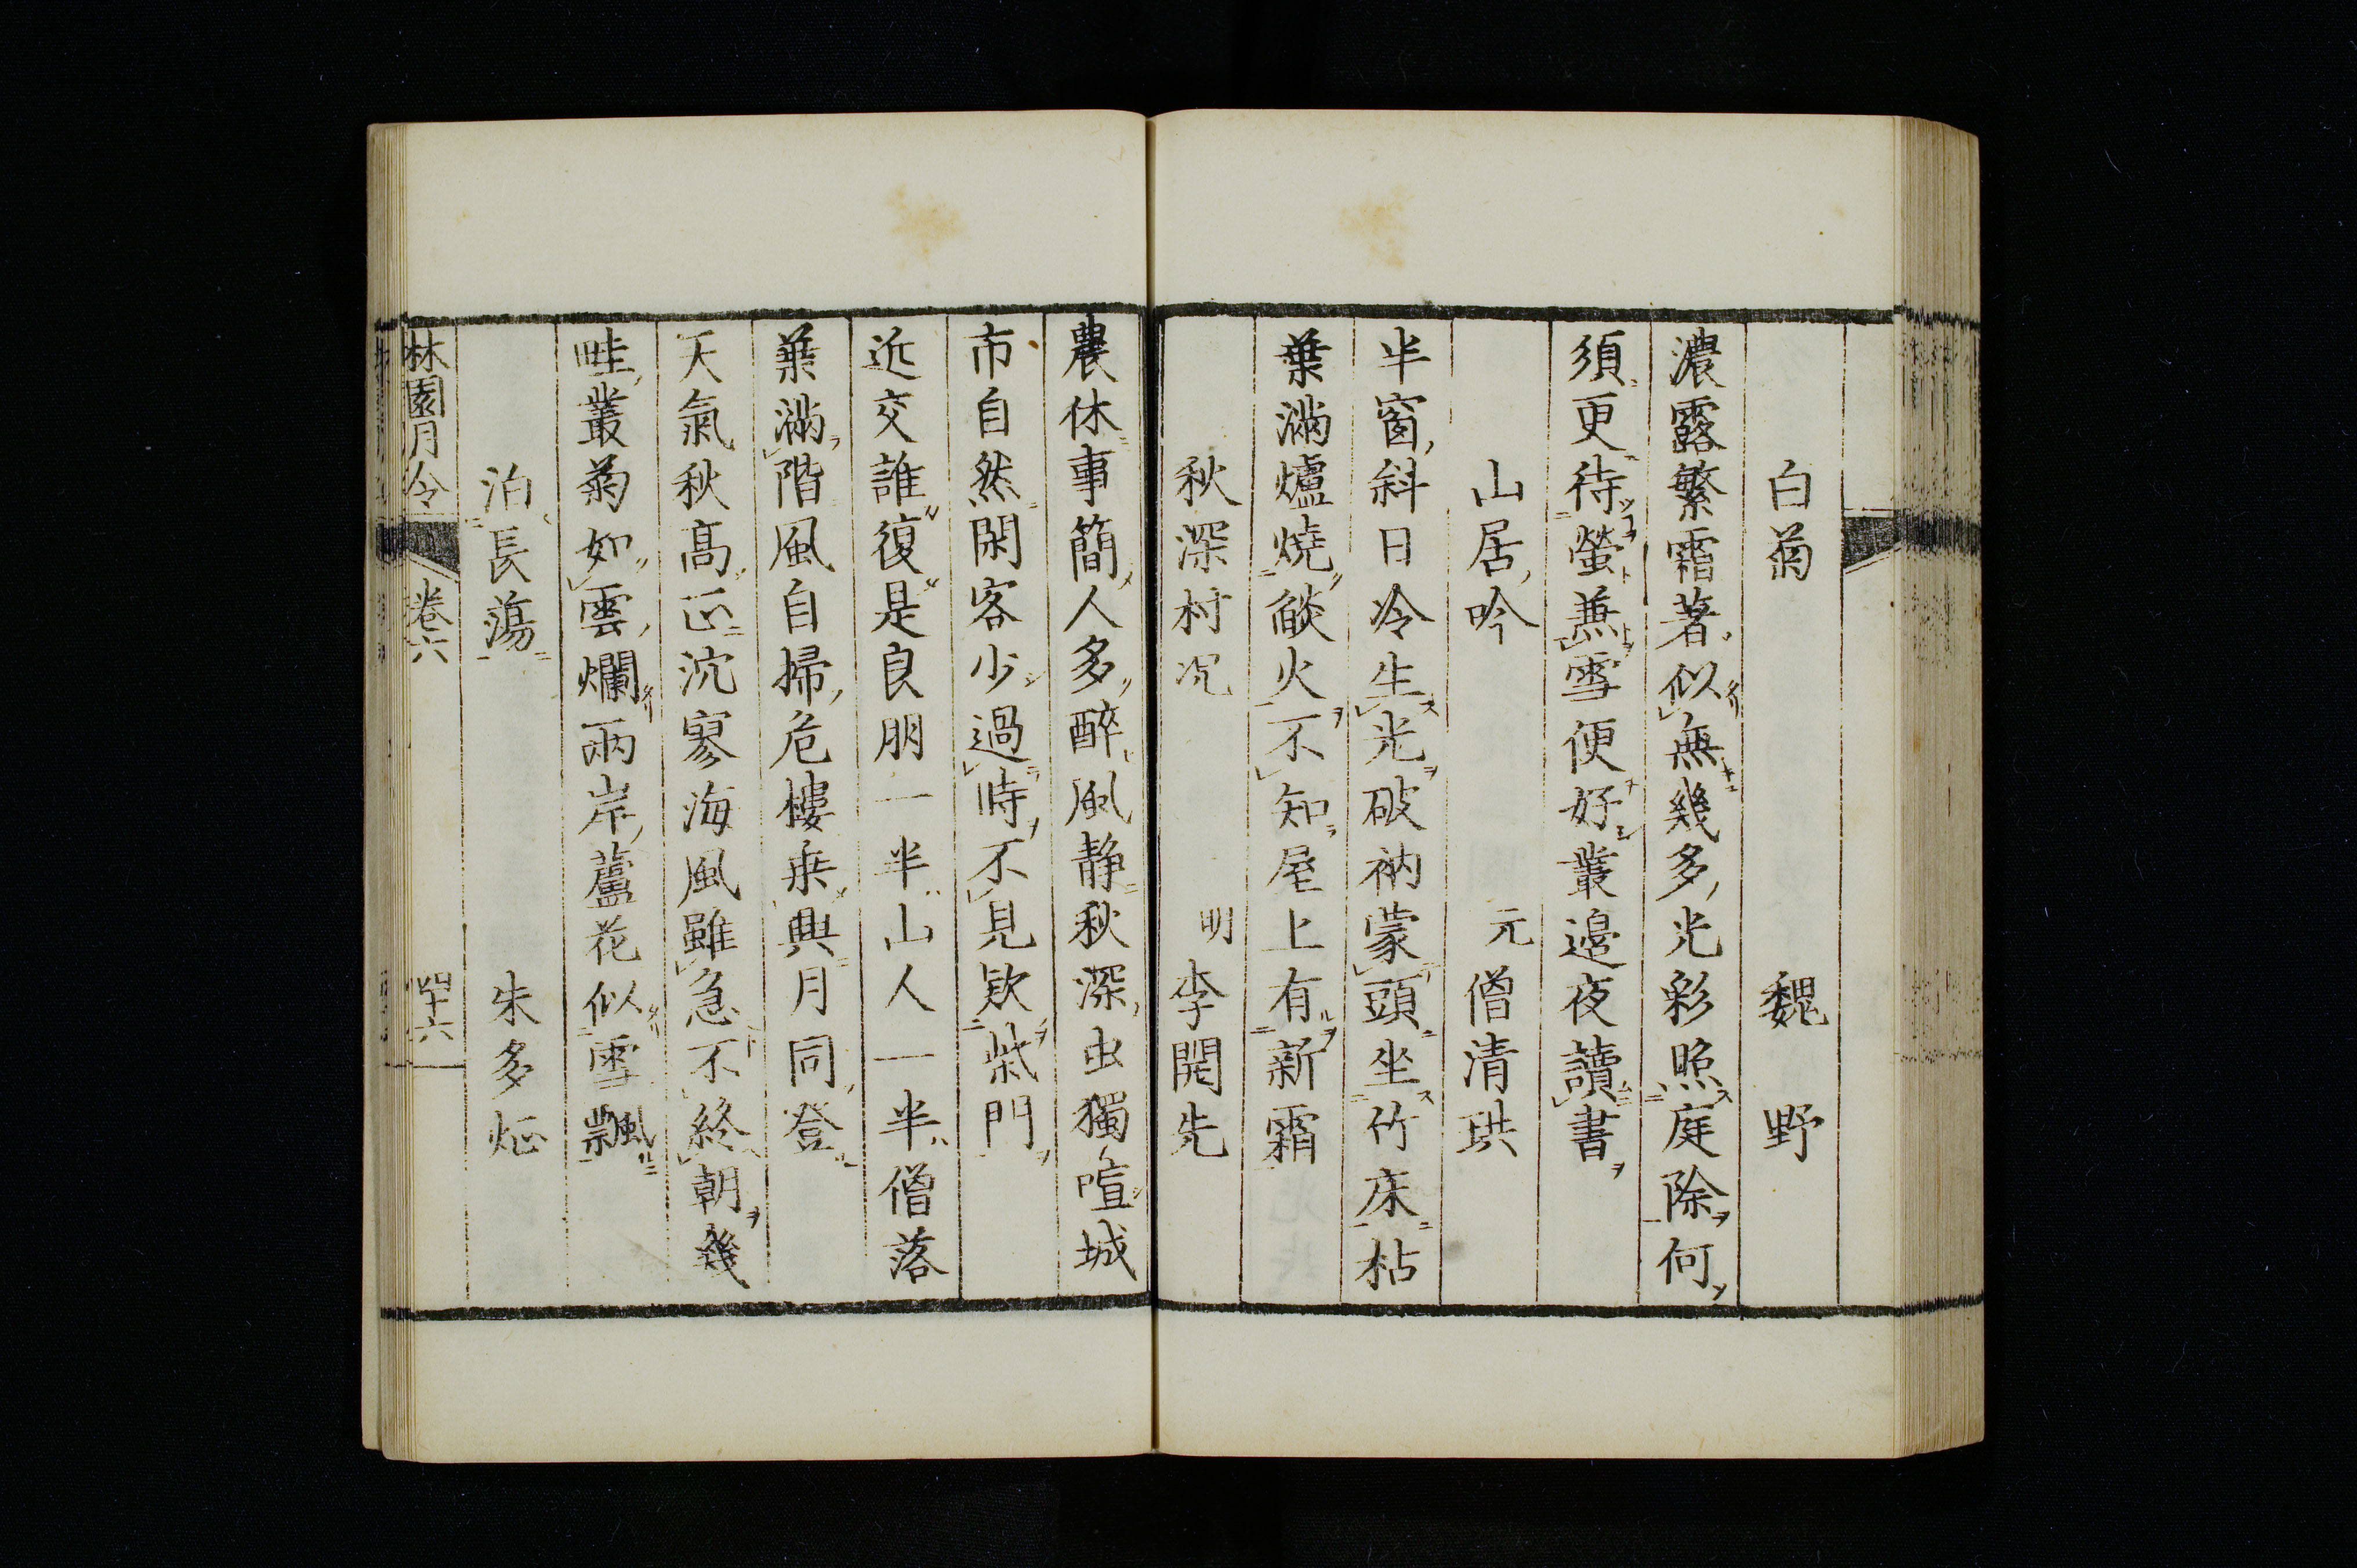 白菊　魏野
濃露繁霜著似無幾多光彩照庭除何
須更待螢兼雪便好叢邉夜讀書
山居吟　元　僧清珙
半窗斜日冷生光破衲蒙頭坐竹床枯
葉滿爐燒燄火不知屋上有新霜
秋深村况　明　李開先
農休事簡人多醉風静秋深虫獨喧城
市自然閑客少過時不見欵柴門
近交誰復是良朋一半山人一半僧落
葉滿階風自掃危樓乗興月同登
天氣秋高正沉寥海風雖急不終朝幾
畦叢菊如雲爛兩岸蘆花似雪飄
泊長蕩　朱多炡
林園月令　卷六　四十六